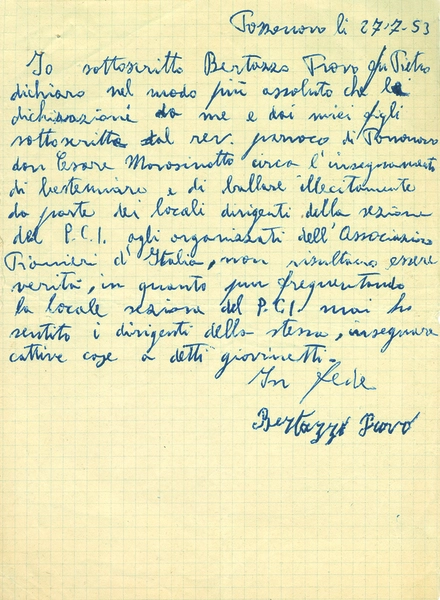 Pozzonovo li 27-7-53
Io sottoscritto Bertazzo Provo fu Pietro
dichiaro nel modo più assoluto che le
dichiarazione da me e dai miei figli
sottoscritte dal rev. parroco di Pozzonovo
don Cesare Morosinotto circa l'insegnamento
di bestemiare e di ballare illecitamente
da parte dei locali dirigenti della sezione
del P.C.I. agli organizzati dell'Associazione
Pionieri d'Italia, non risultano essere
verità, in quanto pur frequentando
la locale sezione del P.C.I. mai ho
sentito i dirigenti della stessa, insegnare
cattive cose a detti giovinetti.
In fede
Bertazzo